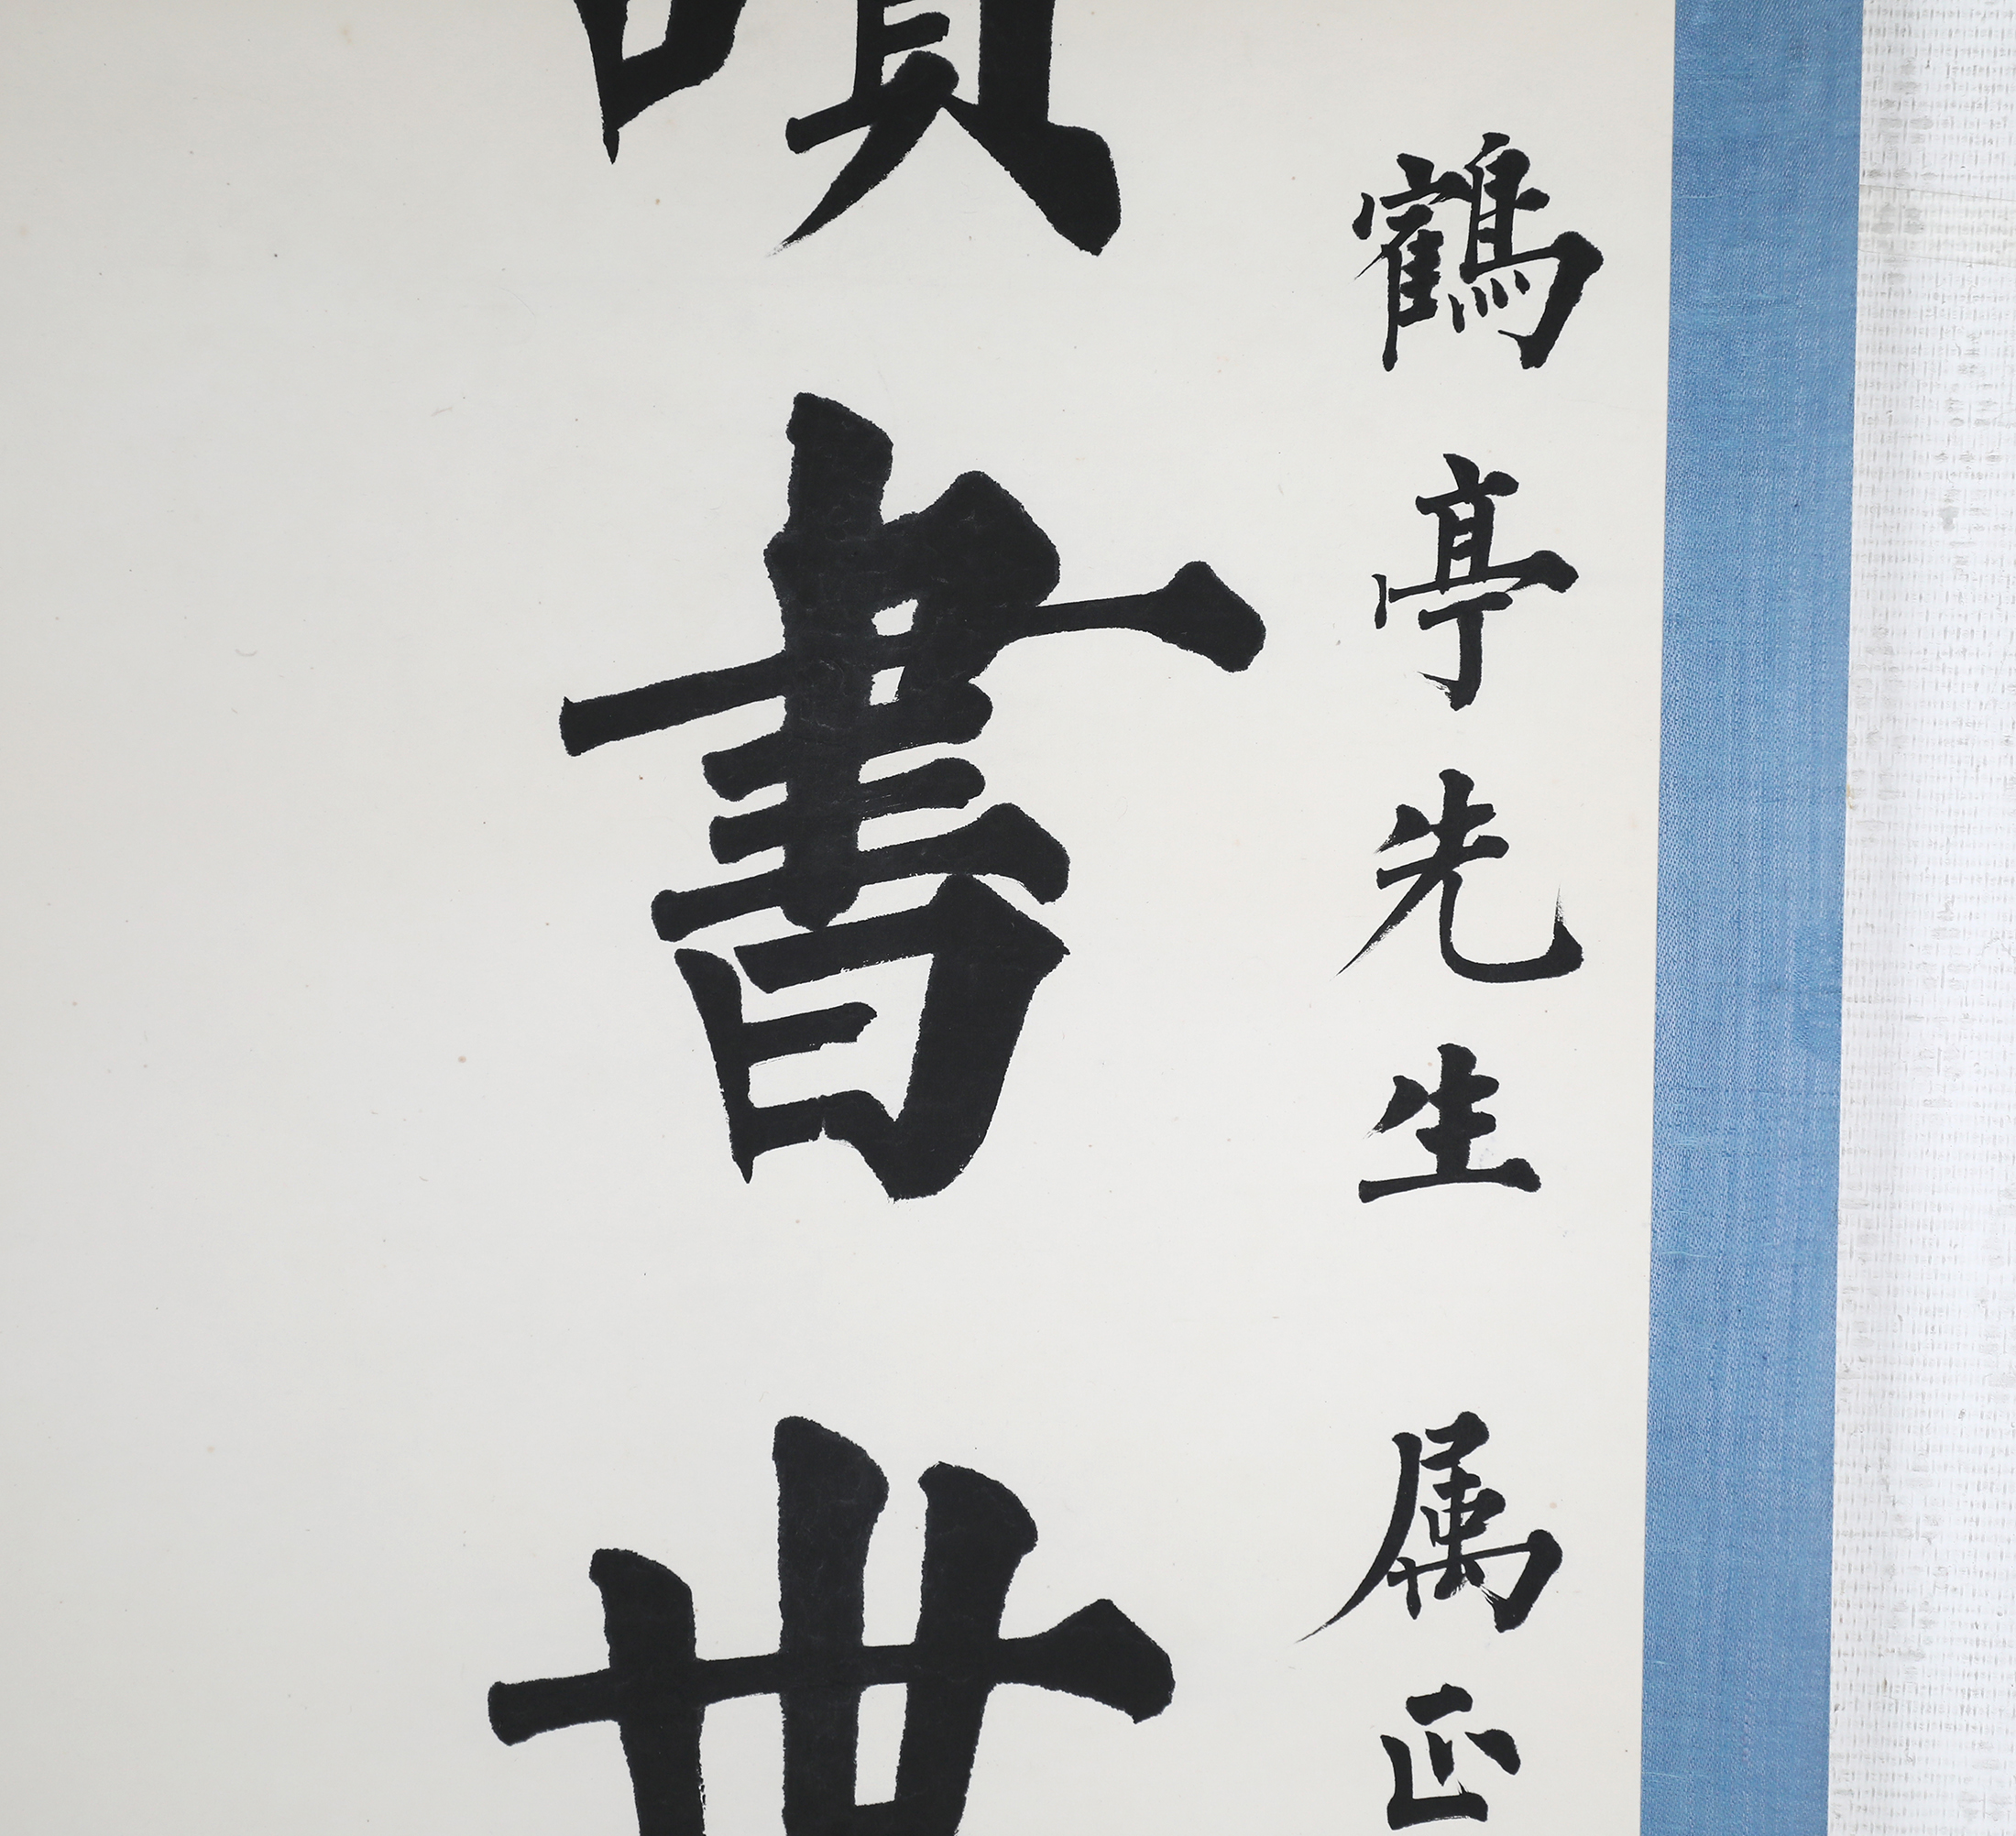 鶴亭先生属正
書世